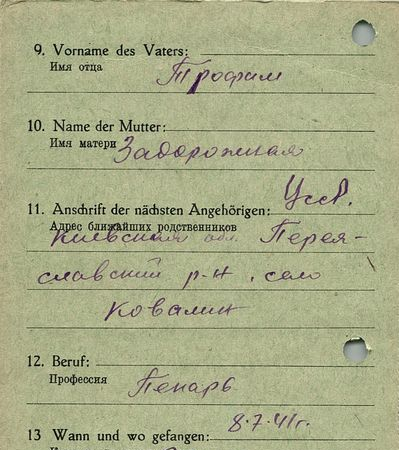 9. Vorname des Vaters:
Имя отца
Трофим
10. Name der Mutter:
Имя матери Задорожная
Усср.
11. Anschrift der nächsten Angehörigen:
Адрес ближайших родственников
Киевская обл. Перея-
славский р-н, село
Ковалин
12. Beruf:
Профессия
Пекарь
8.7.41г.
13 Wann und wo gefangen: